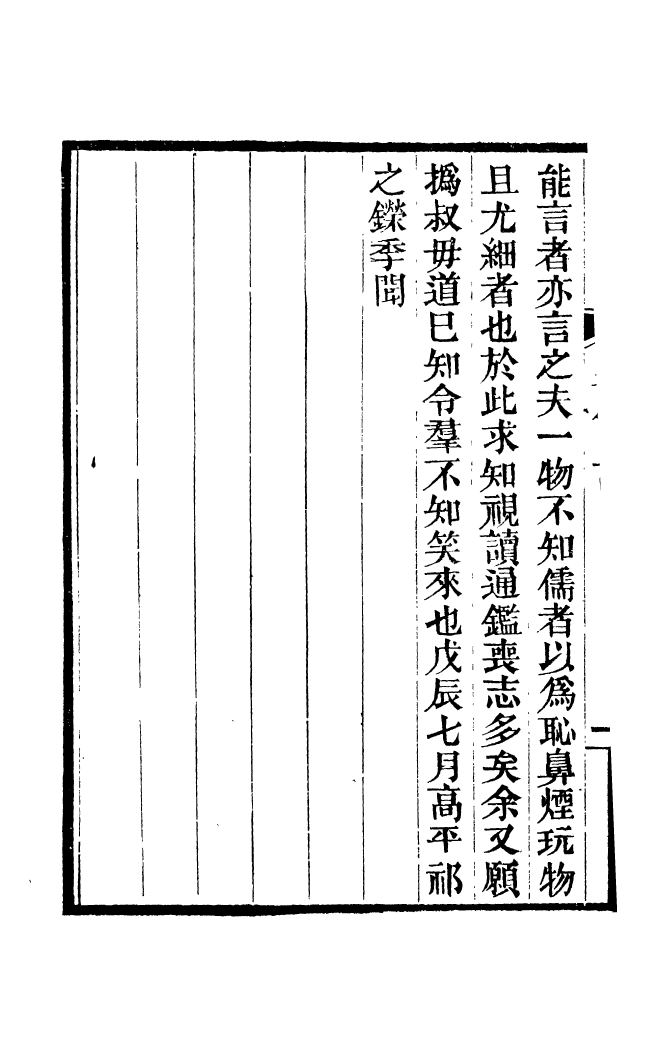 能言者亦言之夫一物不知儒者以爲恥鼻煙玩物
且尤細者也於此求知視讀通鑑喪志多矣余又願
撝叔毋道已知令羣不知笑來也戊辰七月高平祁
之鑅季聞
二